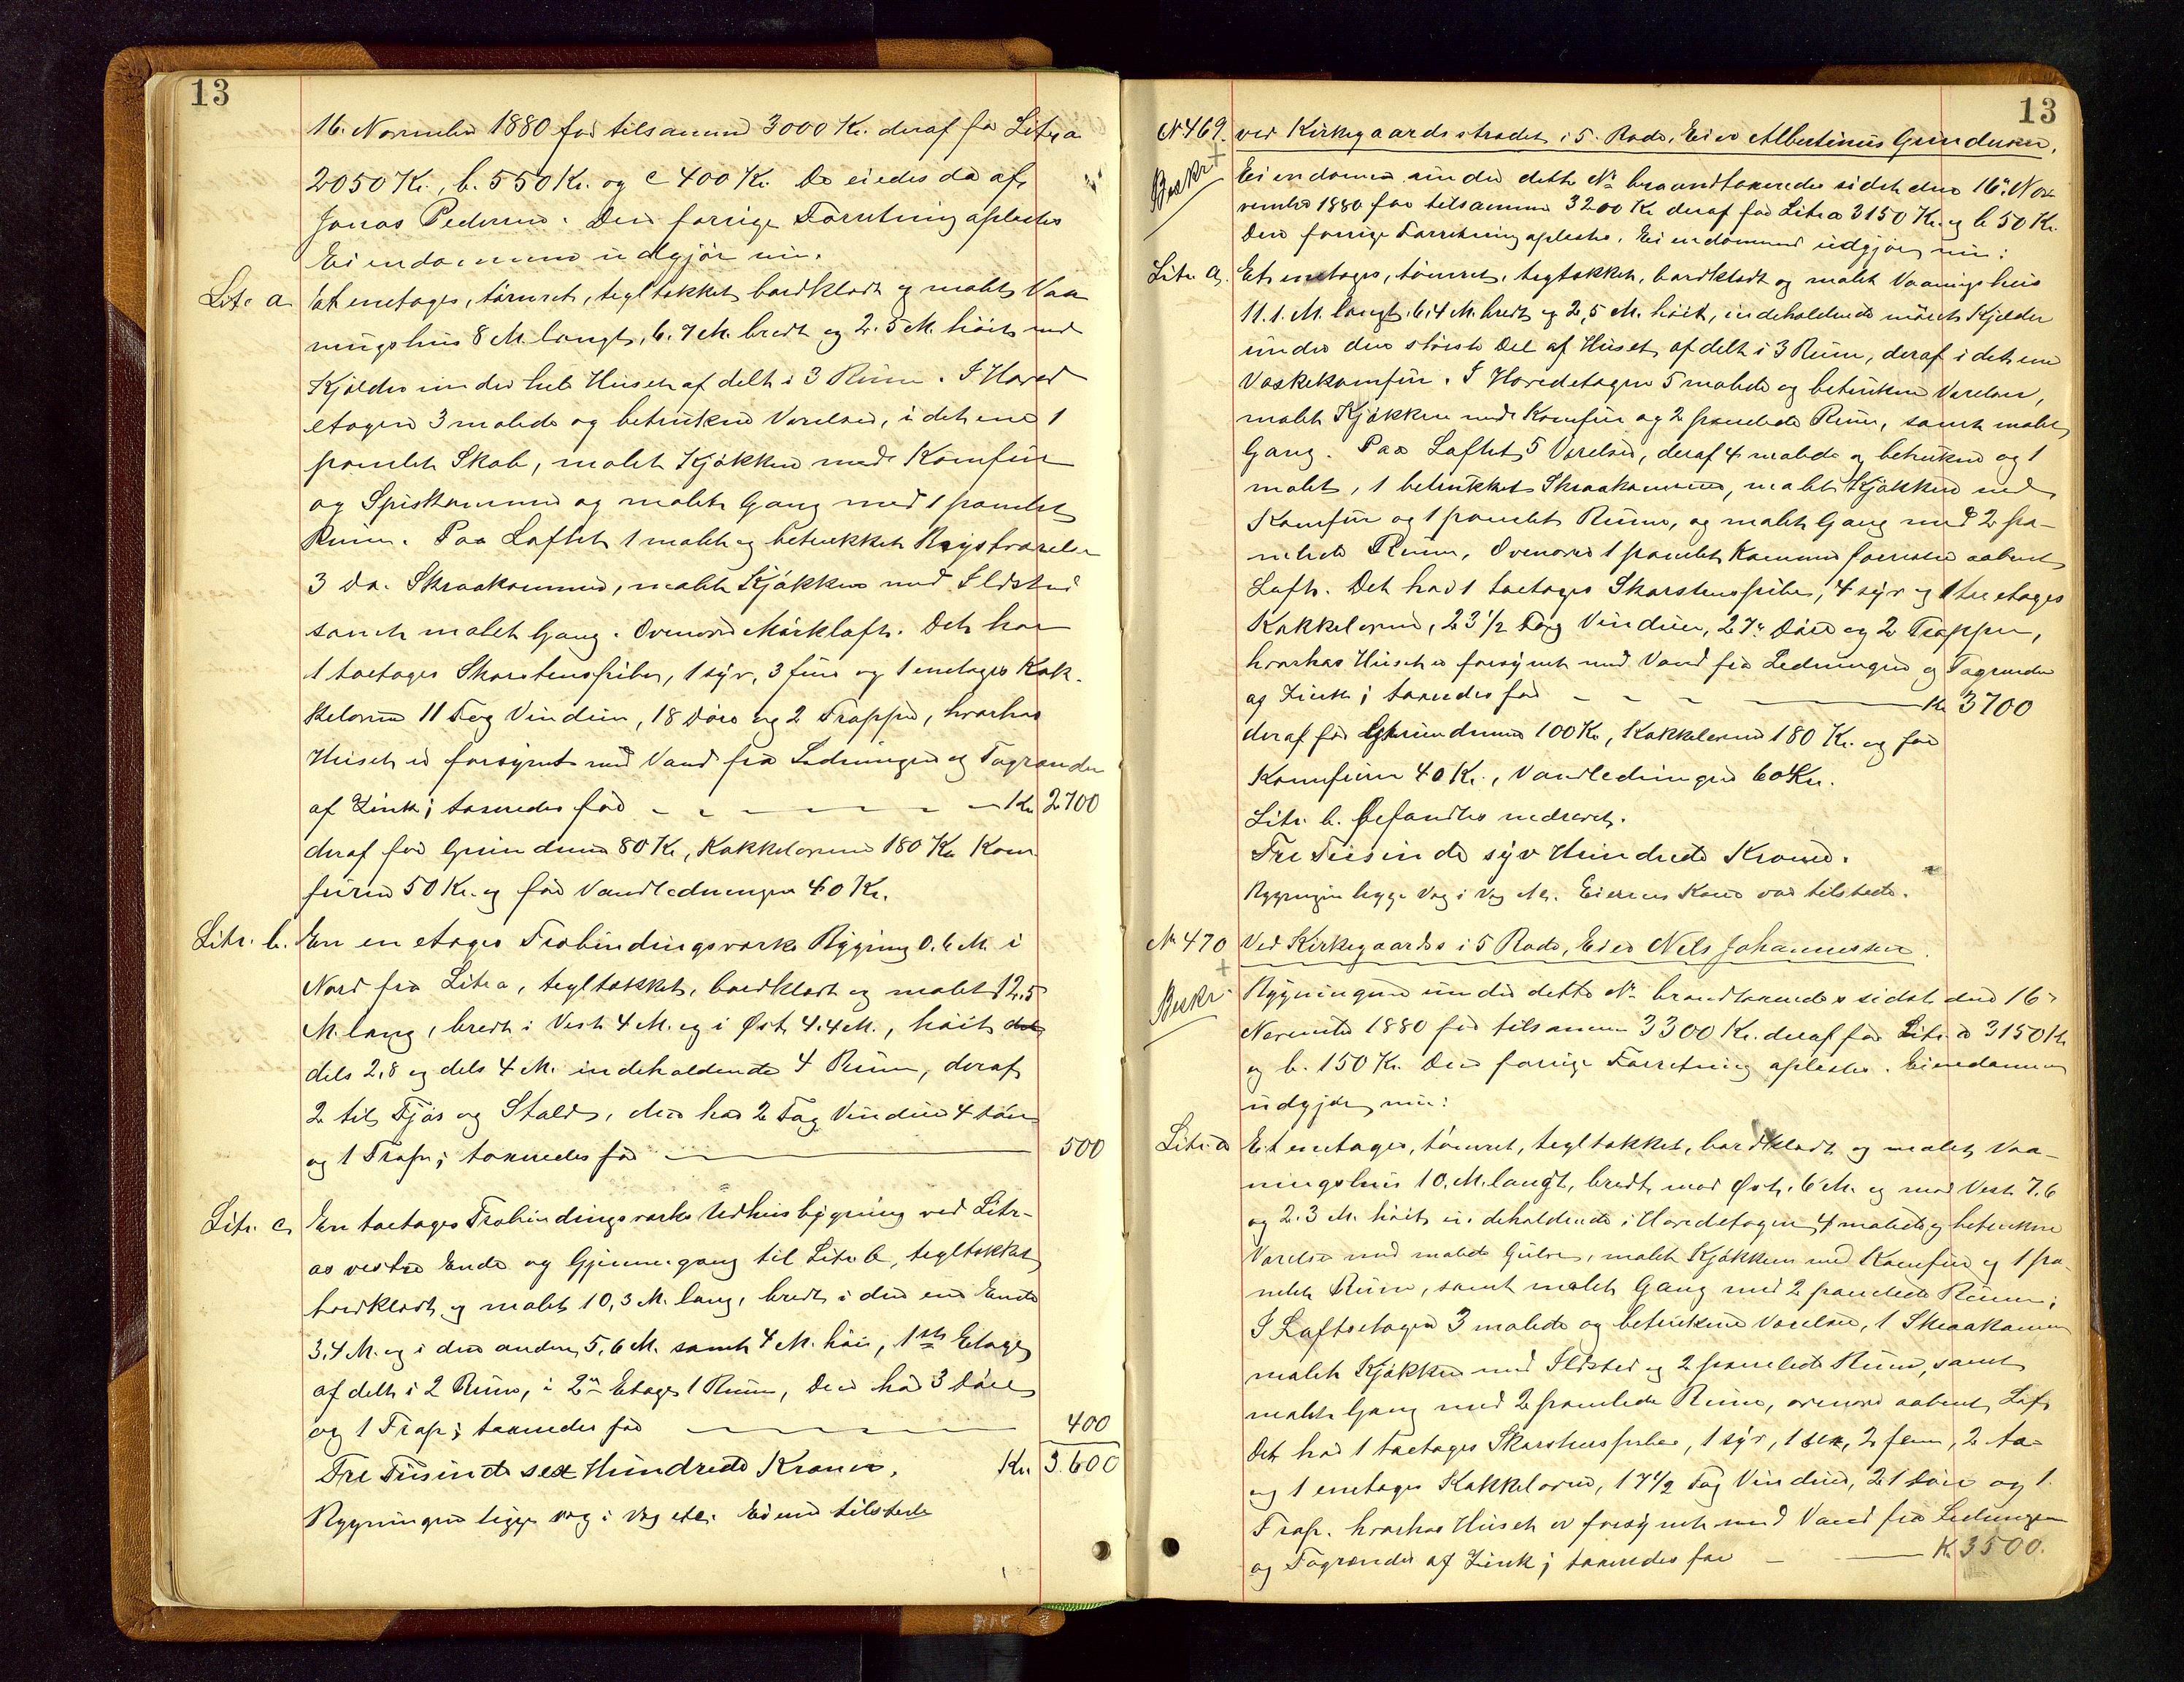 13
16. November 1880 for tilsammen 3000 Kr. deraf for Litr. a
2050 Kr., b. 550 Kr. og c 400 Kr. De eiedes da af
Jonas Pedersen. Den forrige Forretning oplæstes
Eiendommen udgjör nu.
Litr. a. Et enetages, tömret, tegltækket bordklædt og malet Vaa
ningshus 8 M. langt, 6.7 M. bredt og 2.5 M. höit med
Kjælder under hele Huset afdelt i 3 Rum. I Hoved
etagen 3 malede og betrukne Værelser, i det ene 1
panelet Skab, malet Kjökken med Komfür
og Spiskammer og malet Gang med 1 panelet
Rum. Paa Loftet 1 malet og betrukket Kvistværelse
3 do. Skraakammer, malet Kjökken med Ildsted
samt malet Gang. Ovenover Mörkloft. Det har
1 toetages Skorstenspibe, 1 syv, 3 fire og 1 enetages Kak-
kelovne 11 Fag Vinduer, 18 Döre og 2 Trapper, hvorhos
Huset er forsynet med Vand fra Ledningen og Tagrender
af Zink; taxeredes for - - - - - Kr. 2700
deraf for Grunden 80 Kr., Kakkelovnene 180 Kr. Kom-
fürene 50 Kr. og for Vandledningen 40 Kr.
Litr. b. En en etages Træbindingsværks Bygning 0.6 M. i
Nord fra Litr. a, tegltækket, bordklædt og malet 12,5
M. lang, bredt i Vest 4 M. og i Øst 4.4 M., höit
dels 2,8 og dels 4 M. indeholdende 4 Rum, deraf
2 til Fjös og Stald, den har 2 Fag Vinduer 4 Döre
og 1 Trap; taxeredes for 500
Litr. c. En toetages Træbindingsværks Udhusbygning ved Litr.
as vestre Ende og Gjennemgang til Litr. b, tegltækket
bordklædt og malet 10,3 M. lang, bredt i den ene Ende
3,4 M. og i den anden 5,6 M. samt 4 M. höi, 1ste Etage
afdelt i 2 Rum, i 2den Etage 1 Rum, Den har 3 Döre
og 1 Trap; taxeredes for 400
Tre Tusinde sex Hundrede Kroner. Kr. 3600
Bygningen ligge Væg i Væg etc. Eieren tilstede
13
No 469. ved Kirkegaardsstrædet i 5. Rode, Eier Albertinius Gundersen.
Beskr. Eiendommen under dette No brandtaxeredes sidst den 16de No-
vember 1880 for tilsammen 3200 Kr. deraf for Litr. a 3150 Kr. og b 50 Kr.
Den forrige Forretning oplæstes. Eiendommen udgjör nu:
Litr. a. Et enetages, tömret, tegltækket, bordklædt og malet Vaaningshus
11.1. M. langt, 6.4 M. bredt og 2,5 M. höit, indeholdende muret Kjælder
under den störste Del af Huset afdelt i 3 Rum, deraf i det ene
Vaskekomfür. I Hovedetagen 5 malede og betrukne Værelser,
malet Kjökken med Komfür og 2 panelede Rum, samt malet
Gang. Paa Loftet 5 Værelser, deraf 4 malede og betrukne og 1
malet, 1 betrukket Skraakammer, malet Kjökken med
Komfür og 1 panelet Rum, og malet Gang med 2 pa-
nelede Rum, Ovenover 1 panelet Kammer forresten aabent
Loft. Det har 1 toetages Skorstenspibe, 4 syv og 1 tre etages
Kakkelovne, 23 1/2 Fag Vinduer, 27 Döre og 2 Trapper,
hvorhos Huset er forsynet med Vand fra Ledningen og Tagrender
af Zink; taxeredes for - - - Kr. 3700
deraf for Grunden 100 Kr., Kakkelovne 180 Kr. og for
Komfüren 40 Kr., Vandledningen 60 Kr.
Litr. b. befandtes nedrevet.
Tre Tusinde syv Hundrede Kroner.
Bygningen ligge Væg i Væg etc. Eierens Kone var tilstede.
No 470 Ved Kirkegaards i 5 Rode, Eier Nels Johannessen.
Beskr. Bygningene under dette No brandtaxeredes sidst den 16de
November 1880 for tilsammen 3300 Kr. deraf for Litr. a 3150 Kr.
og b. 150 Kr. Den forrige Forretning oplæstes. Eiendommen
udgjör nu:
Litr. a Et enetages, tömret, tegltækket, bordklædt og malet Vaa-
ningshus 10. M. langt, bredt mod Øst, 6 M. og mod Vest 7.6
og 2.3 M. höit indeholdende i Hovedetagen 4 malede og betrukne
Værelser med malede Gulve, malet Kjökken med Komfür og 1 pa-
nelet Rum, samt malet Gang med 2 panelede Rum;
I Loftsetagen 3 malede og betrukne Værelser, 1 Skraakammer
malet Kjökken med Ildsted og 2 panelede Rum, samt
malet Gang med 2 panelede Rum, ovenover aabent Loft
Det har 1 toetages Skorstenspibe, 1 syv, 1 sex, 2 fem, 2 to-
og 1 enetages Kakkelovne, 17 1/2 Fag Vinduer, 21 Döre og 1
Trap. hvorhos Huset er forsynet med Vand fra Ledningen
og Tagrender af Zink; taxeredes for - Kr. 3500.